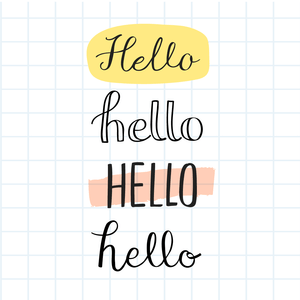 Hello
hello
HELLO
hello